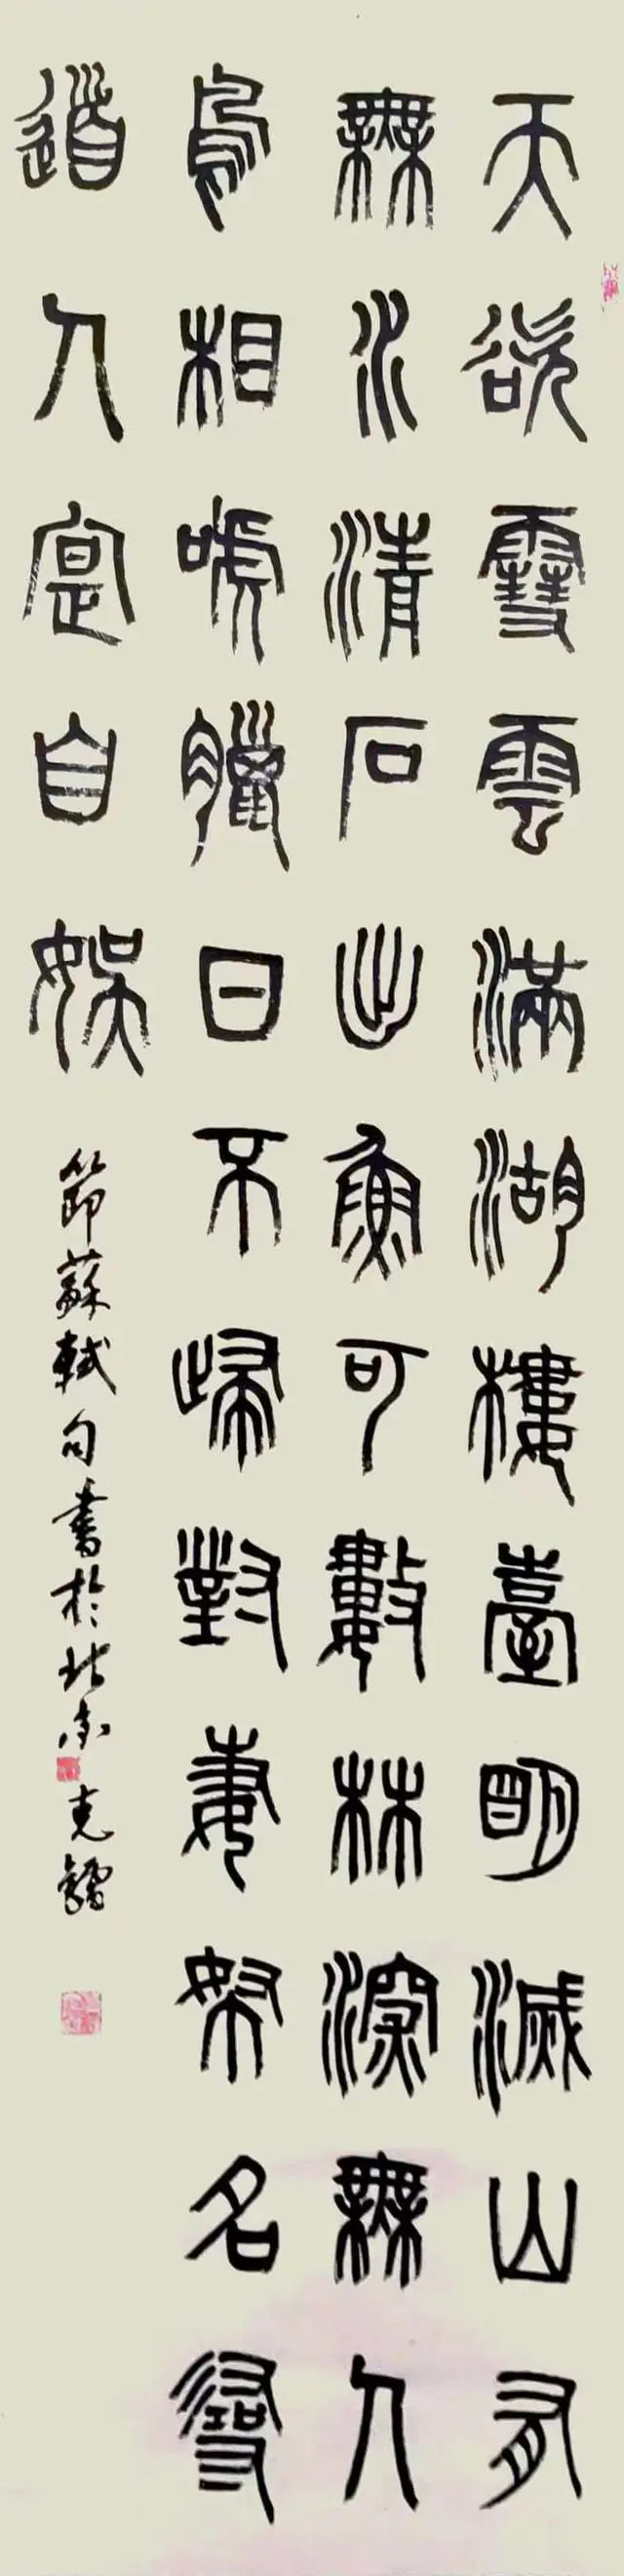 天欲雪雲滿湖樓臺明滅山有
無水清石出魚可數林深無人
鳥相嘑臘日不歸對妻孥名尋
道人寔自娛
節蘇軾句書於北京 克